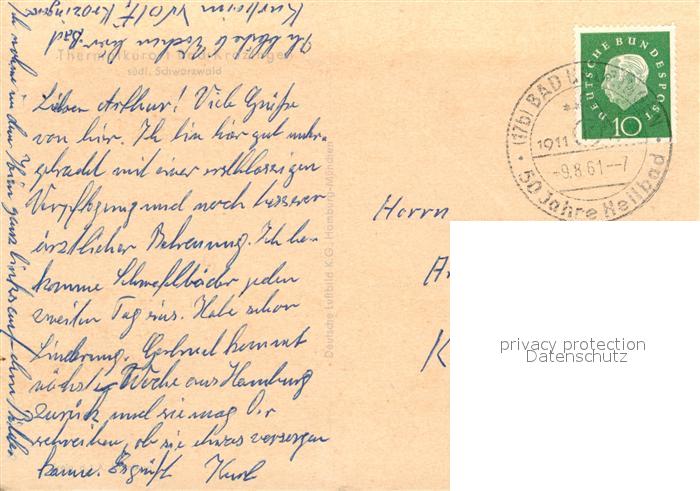 Kurheim Wolf, Krozingen
Ich bleibe 6 Wochen hier. Bad
Thermalkurort Bad Krozingen
südl. Schwarzwald
Lieber Arthur! Viele Grüße
von hier. Ich bin hier gut unter-
gebracht mit einer erstklassigen
Verpflegung und noch besserer
ärztlicher Betreuung. Ich be-
komme Schwefelbäder jeden
zweiten Tag eins. Habe schon
Linderung. kommt
nächste Woche aus Hamburg
zurück und sie mag Dir
schreiben, ob sie etwas versorgen
kann. Es grüßt Kurt
Ich wohne in dem Heim ganz links auf dem Bilde
Deutsche Luftbild K.G. Hamburg-München
DEUTSCHE BUNDESPOST
10
(17b) BAD
1911
-9.8.61--7
50 Jahre Heilbad
Herrn
A
K
privacy protection
Datenschutz